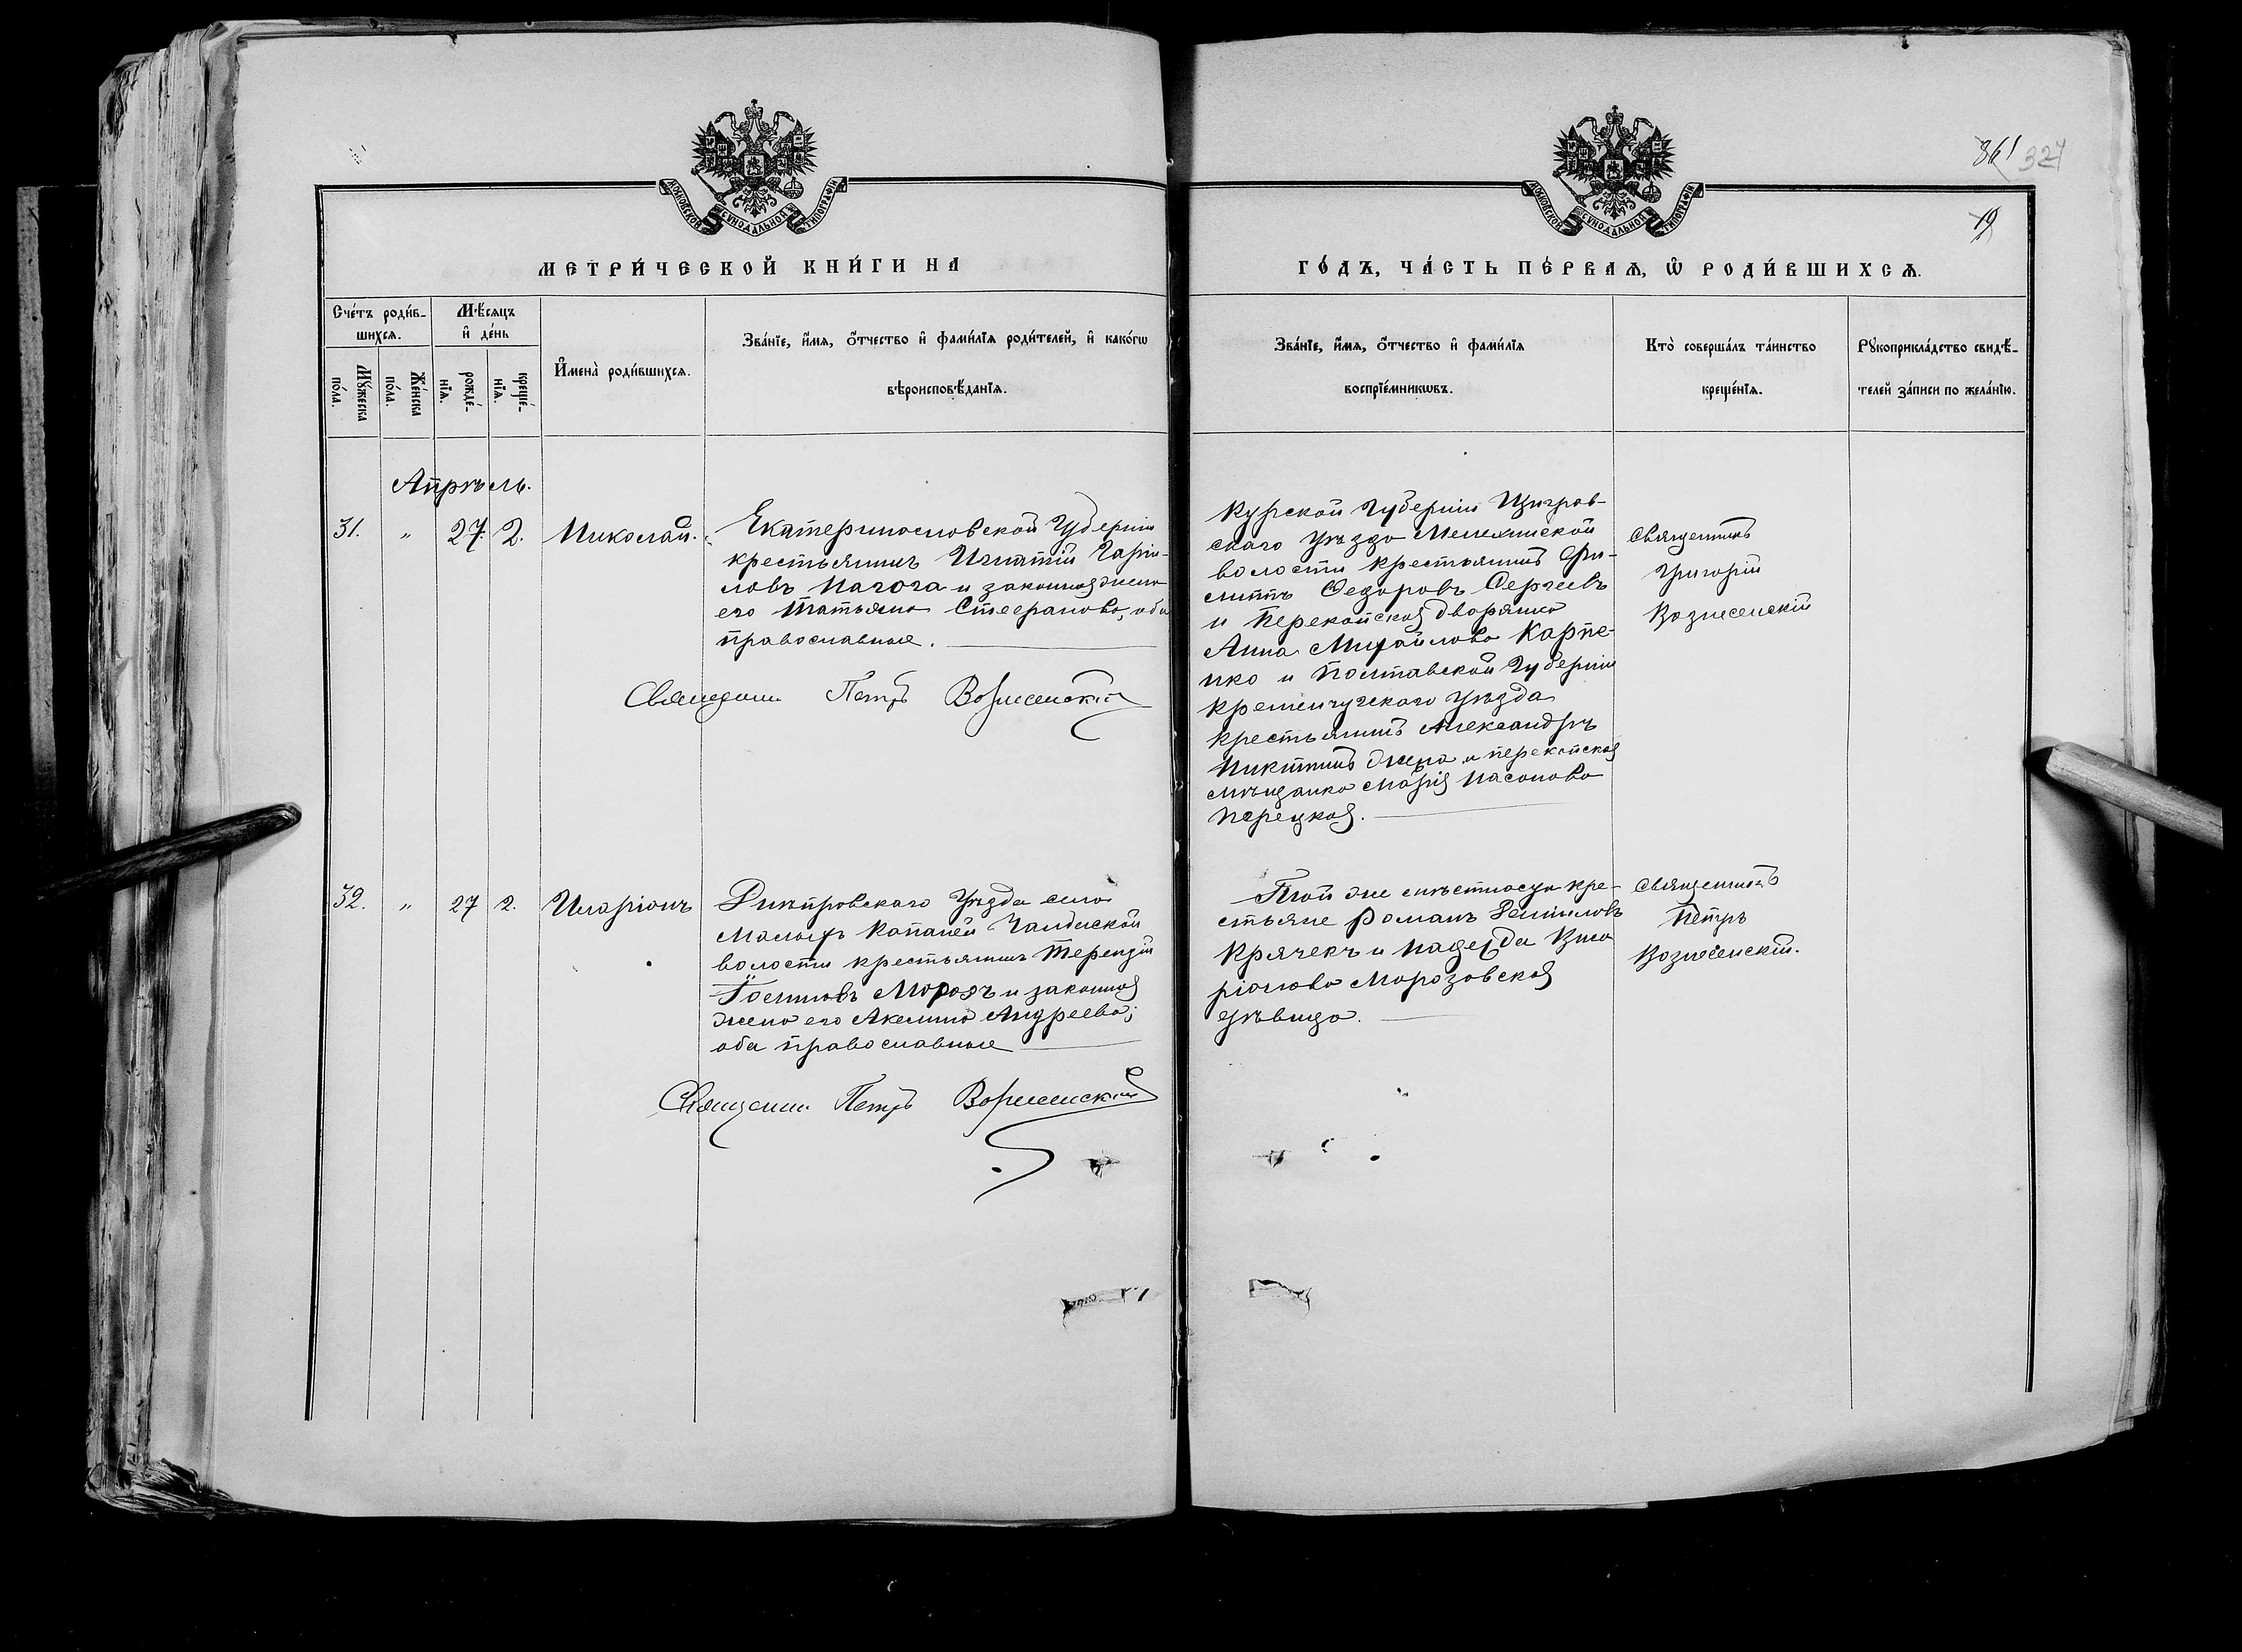 361 327
19
МОСКОВСКОЙ СѴНОДАЛЬНОЙ ТИПОГРАФІИ
МОСКОВСКОЙ СѴНОДАЛЬНОЙ ТИПОГРАФІИ
МЕТРИ́ЧЕСКОЙ КНИ́ГИ НА
ГО́ДЪ, ЧА́СТЬ ПЕ́РВАѦ, Ѿ РОДИ́ВШИХСѦ.
Сче́тъ роди́в-
шихся.
Мѣ́сяцъ
и҆ де́нь
Мꙋ́жеска
по́ла.
Же́нска
по́ла.
рожде́-
нїя.
креще́-
нїя.
И҆мена̀ роди́вшихся.
Зва́нїе, и҆́мя, ѻ҆́тчество и҆ фами́лїя роди́телей, и҆ како́гѡ
вѣроисповѣ́данїя.
Зва́нїе, и҆́мя, ѻ҆́тчество и҆ фами́лїя
воспрїе́мникѡвъ.
Кто̀ соверша́лъ та́инство
креще́нїя.
Рꙋкоприкла́дство свидѣ́-
телей за́писи по жела́нїю.
Апрѣль.
31. " 27. 2. Николай.
Екатеринословской Губерніи
крестьянинъ Игнатій Гаріи-
ловъ Нагога и законная жена
его Татьяна Стефанова, оба
православные.
Священн. Петръ Вознесенскій
Курской Губерніи Щигров-
скаго Уѣзда
волости крестьянинъ Фи-
липпъ Федоровъ Сергеевъ
и Перекопская дворянка
Анна Михайлова Карпе-
нко и Полтавской Губерніи
Кременчугскаго Уѣзда
крестьянинъ Александръ
Никитинъ и перекопская
мѣщанка Марія Насонова
Перецкая.
Священникъ
Григорій
Вознесенскій
32. " 27 2. Иларіонъ
Днѣпровскаго Уѣзда села
Малыхъ Копаней Чалбиской
волости крестьянинъ Терентій
Морозъ и законная
жена его Акелина Андреева;
оба православные
Священн. Петръ Вознесенскій
Той же мѣстности кре-
стьяне Романъ
Крячекъ и Надежда Ила
ріонова Морозовская
дѣвица.
Священникъ
Петръ
Вознесенскій.